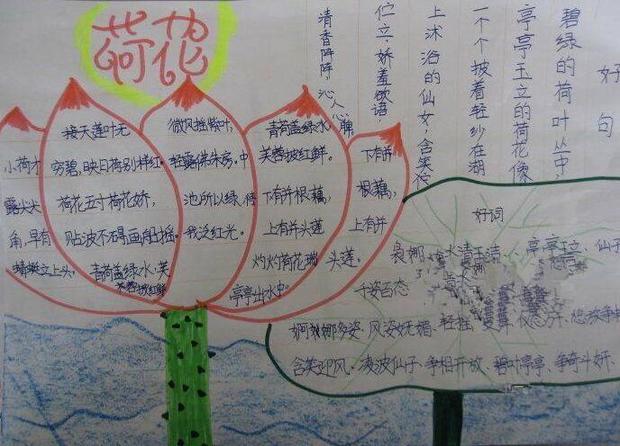 荷花
好句
碧绿的荷叶丛中,
亭亭玉立的荷花像
一个个披着轻纱在湖
上沐浴的仙女,含笑伫
伫立、娇羞欲语,
清香阵阵,沁人心脾
小荷才
露尖尖
角,早有
蜻蜓立上头.
接天莲叶无
穷碧,映日荷别样红.
荷花五寸荷花娇,
贴波不碍画船摇.
青荷盖绿水,芙
蓉披红鲜
微风摇紫叶,
轻露拂朱房.中
池所以绿,待
我泛红光.
青荷盖绿水
芙蓉披红鲜.
下有并根藕,
上有并头莲
灼灼荷花瑞,
亭亭出水中.
下有并
根藕,
上有并
头莲.
好词
袅娜、冰清玉洁、亭亭玉立、仙子
千姿百态
婀娜多姿、风姿妩媚、轻摇、
含笑迎风、凌波仙子、争相开放、碧叶亭亭、争奇斗妍.